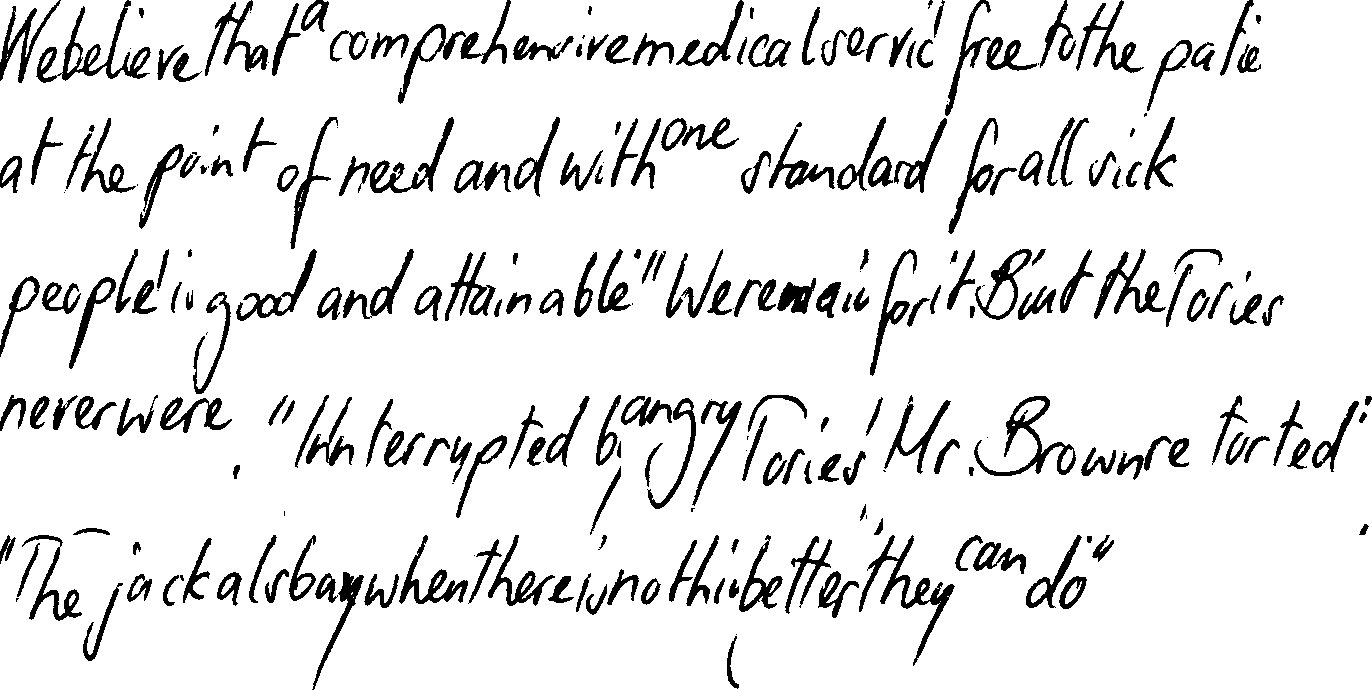 We believe that a comprehensive medical servic free to the patie
at the point of need and with one standard for all sick
people is good and attainable" We remain for it. But the Tories
never were. " Interrupted by angry Tories Mr. Brown retorted:
"The jackals bay when there is nothing better they can do"